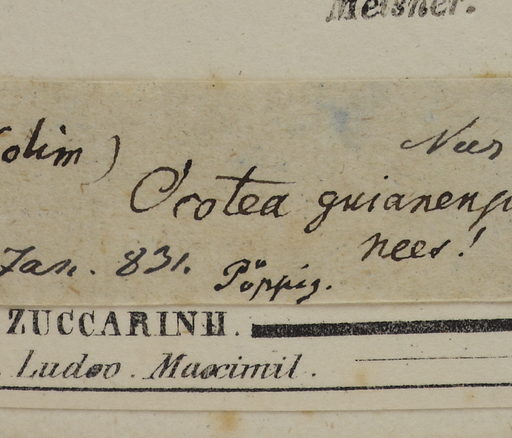 Meisner.
olim)
Nees
Ocotea guianensi
nees!
Jan. 831. Pöppig.
ZUCCARINII.
Ludov. Maximil.